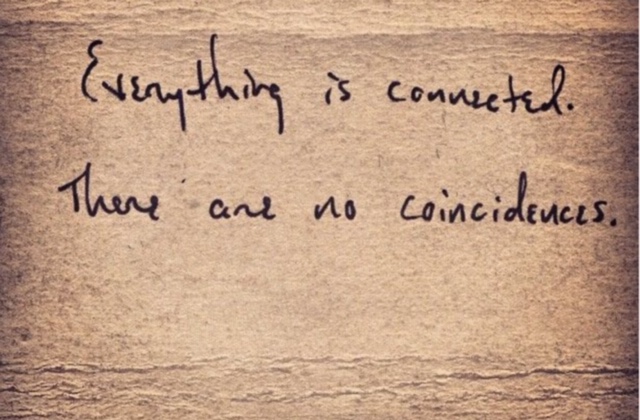 Everything is connected.
There are no coincidences.